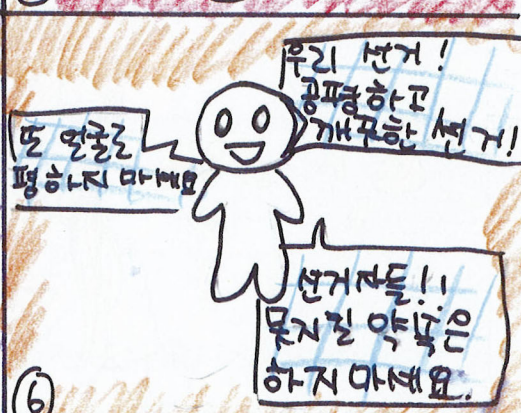 우리 선거!
공평하고
깨끗한 선거!
또 얼굴로
평하지 마세요
선거자들!!
못지킬 약속은
하지 마세요.
6